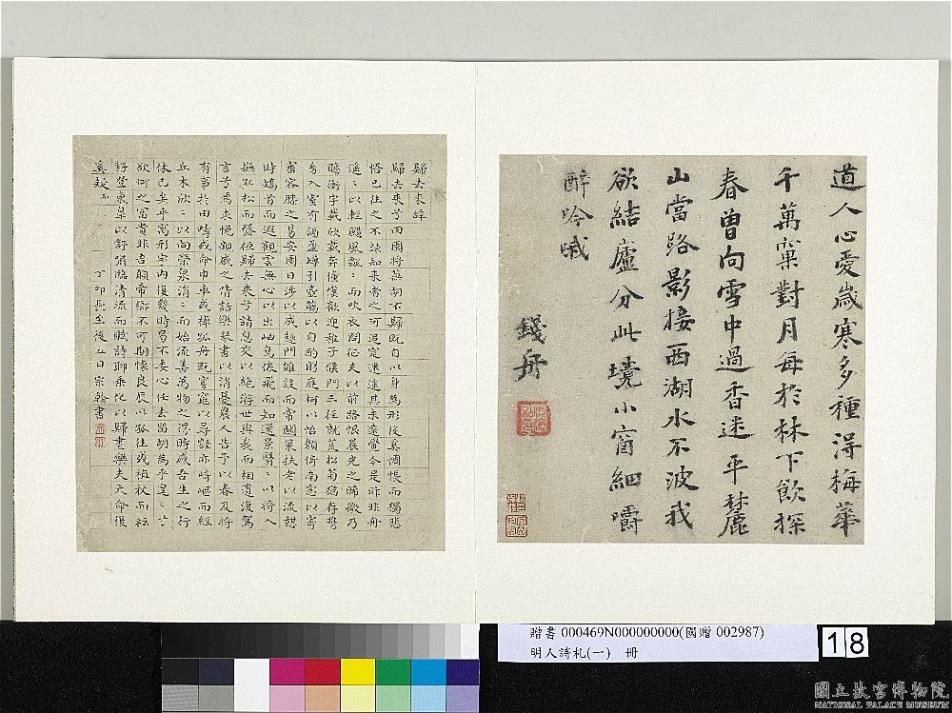 道人心愛歲寒多種得梅華
千萬窠對月每於林下飲探
春曾向雪中過香迷平麓
山當路影接西湖水不波我
欲結廬分此境小窗細嚼
醉吟哦
錢舟
歸去來辭
歸去來兮田園將蕪胡不歸既自以身為形役奚惆悵而獨悲
悟已往之不諫知來者之可追寔迷途其未遠覺今是非非舟
遙〻以輕颺風飄〻而吹衣問征夫以前路恨晨光之晞微乃
瞻衡宇載欣載奔僮僕歡迎稚子候門三徑就荒松菊猶存攜
幼入室有酒盈罇引壺觴以自酌眄庭柯以怡顏倚南窗以寄
審容膝之易安園日涉以成趣門雖設而常關策扶老以流憩
時矯首而遐觀雲無心以出岫鳥倦飛而知還景翳〻以將入
撫孤松而盤桓歸去來兮請息交以絕游世與我而相遺復駕
言兮焉求悅親戚之情話樂琴書以消憂農人告予以春及將
有事於田疇或命巾車或棹孤舟既窈窕以尋壑亦崎嶇而經
丘木欣〻以向榮泉涓〻而始流善萬物之得時感吾生之行
休已矣乎寓形宇內復幾時曷不委心任去留胡為乎遑〻兮
欲何之富貴非吾願帝鄉不可期懷良辰以孤往或植杖而耘
籽登東皋以舒嘯臨清流而賦詩聊乘化以歸盡樂夫天命復
奚疑
丁卯長至後五日宗翰書
贈書 000469N000000000(國贈 002987)
明人詩札(一) 冊
18
國立故宮博物院
NATIONAL PALACE MUSEUM